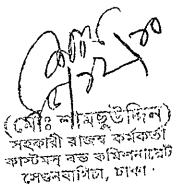 (মোঃ শামছুউদ্দিন)
সহকারী রাজস্ব কর্মকর্তা
কাস্টমস বন্ড কমিশনারেট
সেগুনবাগিচা, ঢাকা।